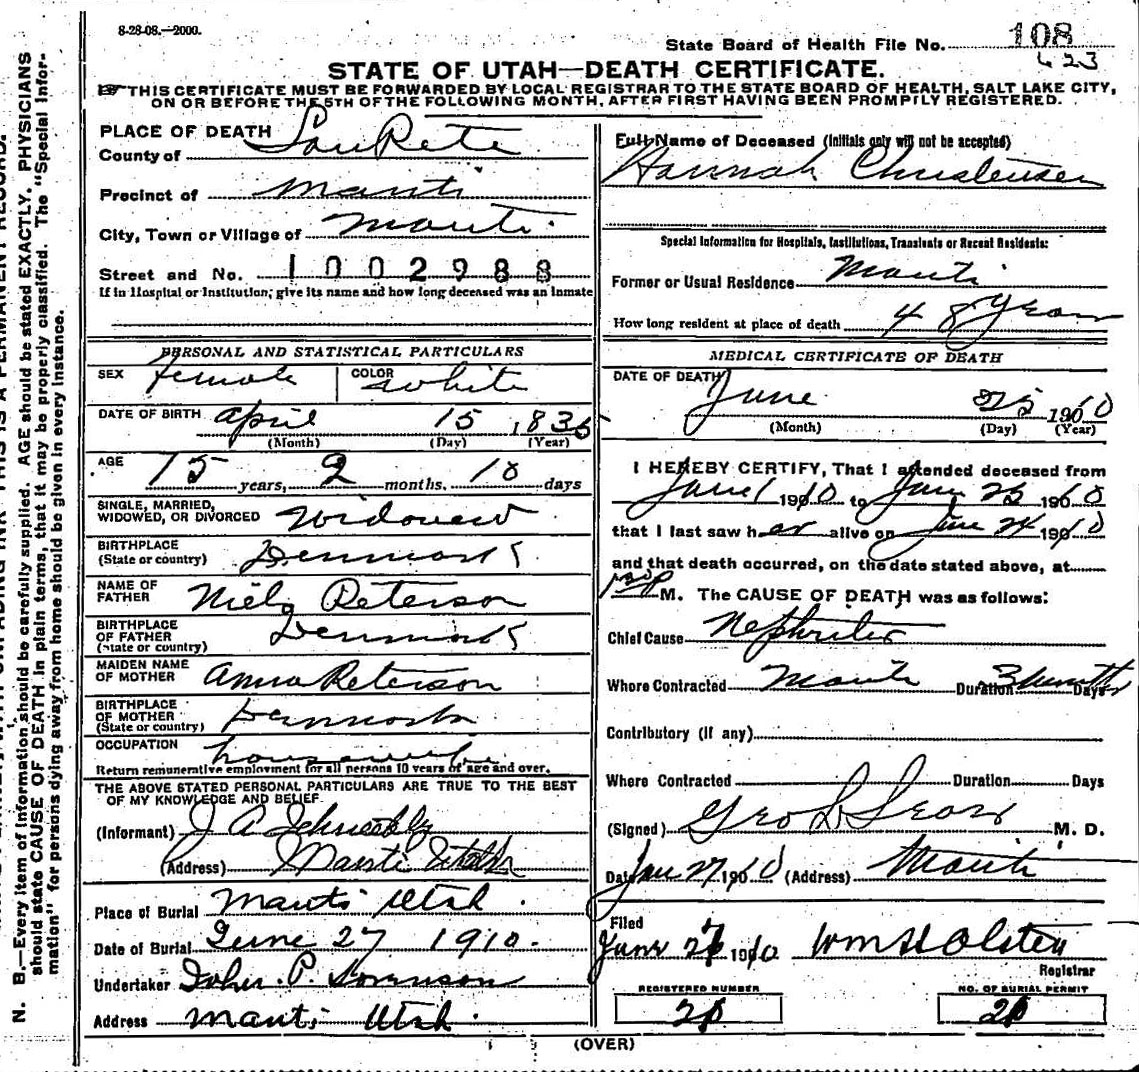 8-28-08.—2000.
State Board of Health File No. 108
423
STATE OF UTAH—DEATH CERTIFICATE.
THIS CERTIFICATE MUST BE FORWARDED BY LOCAL REGISTRAR TO THE STATE BOARD OF HEALTH, SALT LAKE CITY,
ON OR BEFORE THE 5TH OF THE FOLLOWING MONTH, AFTER FIRST HAVING BEEN PROMPTLY REGISTERED.
PLACE OF DEATH
County of SanPete
Precinct of Manti
City, Town or Village of Manti
Street and No. 1002988
If in Hospital or Institution, give its name and how long deceased was an inmate
PERSONAL AND STATISTICAL PARTICULARS
SEX Female COLOR White
DATE OF BIRTH April 15 1835
(Month) (Day) (Year)
AGE 75 years, 2 months, 10 days
SINGLE, MARRIED,
WIDOWED, OR DIVORCED Widowed
BIRTHPLACE
(State or country) Denmark
NAME OF
FATHER Niels Peterson
BIRTHPLACE
OF FATHER
(State or country) Denmark
MAIDEN NAME
OF MOTHER Anna Peterson
BIRTHPLACE
OF MOTHER
(State or country) Denmark
OCCUPATION housewife
Return remunerative employment for all persons 10 years of age and over.
THE ABOVE STATED PERSONAL PARTICULARS ARE TRUE TO THE BEST
OF MY KNOWLEDGE AND BELIEF
(Informant) J A
(Address) Manti Utah
Place of Burial Manti Utah.
Date of Burial June 27 1910.
Undertaker P.
Address Manti Utah.
Full Name of Deceased (Initials only will not be accepted)
Hannah Christensen
Special Information for Hospitals, Institutions, Transients or Recent Residents:
Former or Usual Residence Manti
How long resident at place of death 48 years
MEDICAL CERTIFICATE OF DEATH
DATE OF DEATH June 25 1910
(Month) (Day) (Year)
I HEREBY CERTIFY, That I attended deceased from
June 1 1910 to June 25 1910
that I last saw her alive on June 24 1910
and that death occurred, on the date stated above, at
M. The CAUSE OF DEATH was as follows:
Chief Cause Nephritis
Where Contracted Manti Duration 3 months Days
Contributory (if any)
Where Contracted Duration Days
(Signed) Geo L Sears M. D.
Date June 27 1910 (Address) Manti
Filed
June 27 1910 Wm H Olsten
Registrar
REGISTERED NUMBER
NO. OF BURIAL PERMIT
(OVER)
N. B.—Every item of information should be carefully supplied. AGE should be stated EXACTLY. PHYSICIANS
should state CAUSE OF DEATH in plain terms, that it may be properly classified. The "Special Infor-
mation" for persons dying away from home should be given in every instance.